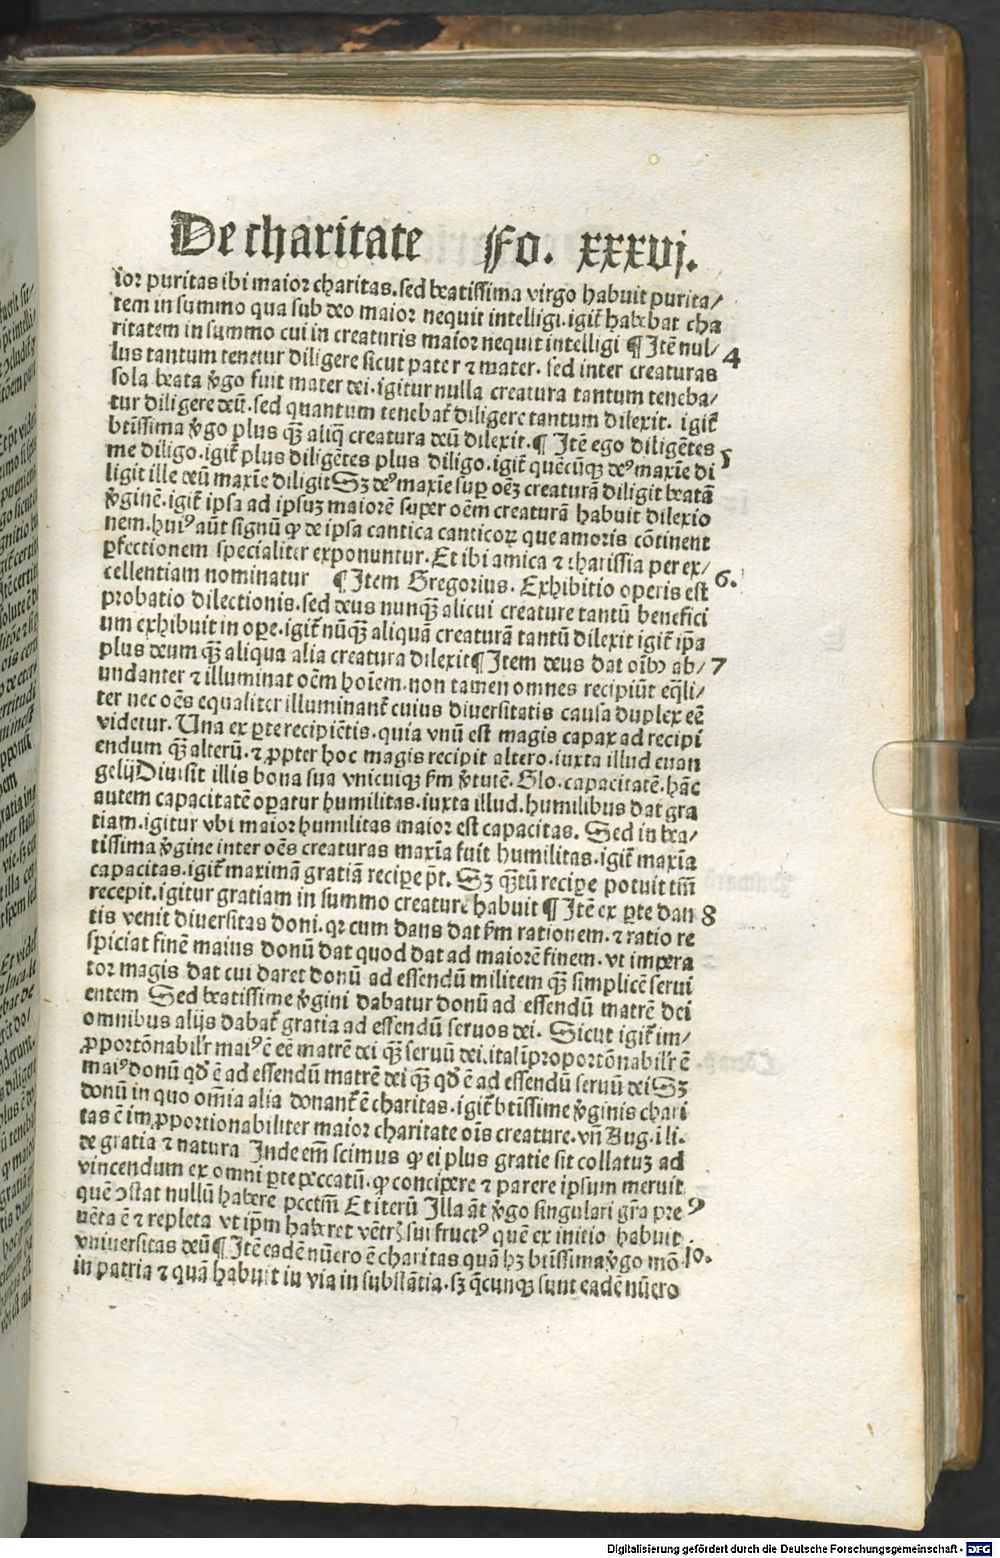 De charitate Fo. xxxvj.
ior puritas ibi maior charitas. sed beatissima virgo habuit purita/
tem in summo qua sub deo maior nequit intelligi. igit̃ habebat cha
ritatem in summo cui in creaturis maior nequit intelligi ¶ Itẽ nul/ 4
lus tantum tenetur diligere sicut pater ⁊ mater. sed inter creaturas
sola beata v̾go fuit mater dei. igitur nulla creatura tantum teneba/
tur diligere deũ. sed quantum tenebat̃ diligere tantum dilexit. igit̃
btissima v̾go plus qꝫ̃ aliq̃ creatura deũ dilexit. ¶ Itẽ ego diligẽtes 5
me diligo. igit̃ plus diligẽtes plus diligo. igit̃ quẽcũqꝫ deꝰ maxĩe di
ligit ille deũ maxĩe diligit Sꝫ deꝰ maxĩe suꝑ oẽꝫ creaturã diligit beatã
v̾ginẽ. igit̃ ipsa ad ipsuꝫ maiorẽ super oẽm creaturã habuit dilectio
nem. huiꝰ aũt signũ ꝙ de ipsa cantica canticoꝝ que amoris cõtinent
ꝑfectionem specialiter exponuntur. Et ibi amica ⁊ charissĩa per ex/
cellentiam nominatur ¶ Item Gregorius. Exhibitio operis est 6.
probatio dilectionis. sed deus nunqꝫ̃ alicui creature tantũ benefici
um exhibuit in oꝑe. igit̃ nũqꝫ̃ aliquã creaturã tantũ dilexit igit̃ ip̃a
plus deum qꝫ̃ aliqua alia creatura dilexit ¶ Item deus dat oĩbꝰ ab/ 7
undanter ⁊ illuminat oẽm hoĩem. non tamen omnes recipiũt eq̃li/
ter nec oẽs equaliter illuminant̃ cuius diuersitatis causa duplex eẽ
videtur. Una ex ꝑte recipiẽtis. quia vnũ est magis capax ad recipi
endum qꝫ̃ alterũ. ⁊ ꝓpter hoc magis recipit altero. iuxta illud euan
gelij Diuisit illis bona sua vnicuiqꝫ s̃m v̾tutẽ. Glo. capacitatẽ. hãc
autem capacitatẽ oꝑatur humilitas. iuxta illud. humilibus dat gra
tiam. igitur vbi maior humilitas maior est capacitas. Sed in bea/
tissima v̾gine inter oẽs creaturas maxĩa fuit humilitas. igit̃ maxĩa
capacitas. igit̃ maximã gratiã reciꝑe p̃t. Sꝫ qꝫ̃tũ reciꝑe potuit tm̃
recepit. igitur gratiam in summo creature habuit ¶ Itẽ ex ꝑte dan 8
tis venit diuersitas doni. qꝛ cum dans dat s̃m rationem. ⁊ ratio re
spiciat finẽ maius donũ dat quod dat ad maiorẽ finem. vt impera
tor magis dat cui daret donũ ad essendũ militem qꝫ̃ simplicẽ serui
entem Sed beatissime v̾gini dabatur donũ ad essendũ matrẽ dei
omnibus alijs dabat̃ gratia ad essendũ seruos dei. Sicut igit̃ im/
ꝓportõnabilr̃ maiꝰ ẽ eẽ matrẽ dei qꝫ̃ seruũ dei. ita ĩproportõnabilr̃ ẽ
maiꝰ donũ qđ ẽ ad essendũ matrẽ dei qꝫ̃ qđ ẽ ad essendũ seruũ dei Sꝫ
donũ in quo om̃ia alia donant̃ ẽ charitas. igit̃ btissime v̾ginis chari
tas ẽ imꝓportionabiliter maior charitate oĩs creature. vñ Aug. i li.
de gratia ⁊ natura Inde em̃ scimus ꝙ ei plus gratie sit collatuꝫ ad
vincendum ex omni ꝑte peccatũ. ꝙ concipere ⁊ parere ipsum meruit
quẽ ↄstat nullũ habere pcctm̃ Et iterũ Illa ãt v̾go singulari gr̃a pre 9
uẽta ẽ ⁊ repleta vt ip̃m haberet vẽtrꝭ sui fructꝰ quẽ ex initio habuit
vniuersitas deũ ¶ Itẽ eadẽ nũero ẽ charitas quã hꝫ btissima v̾go mõ 10.
in patria ⁊ quã habuit in via in substãtia. sꝫ q̃cunqꝫ sunt eadẽ nũero
Digitalisierung gefördert durch die Deutsche Forschungsgemeinschaft - DFG